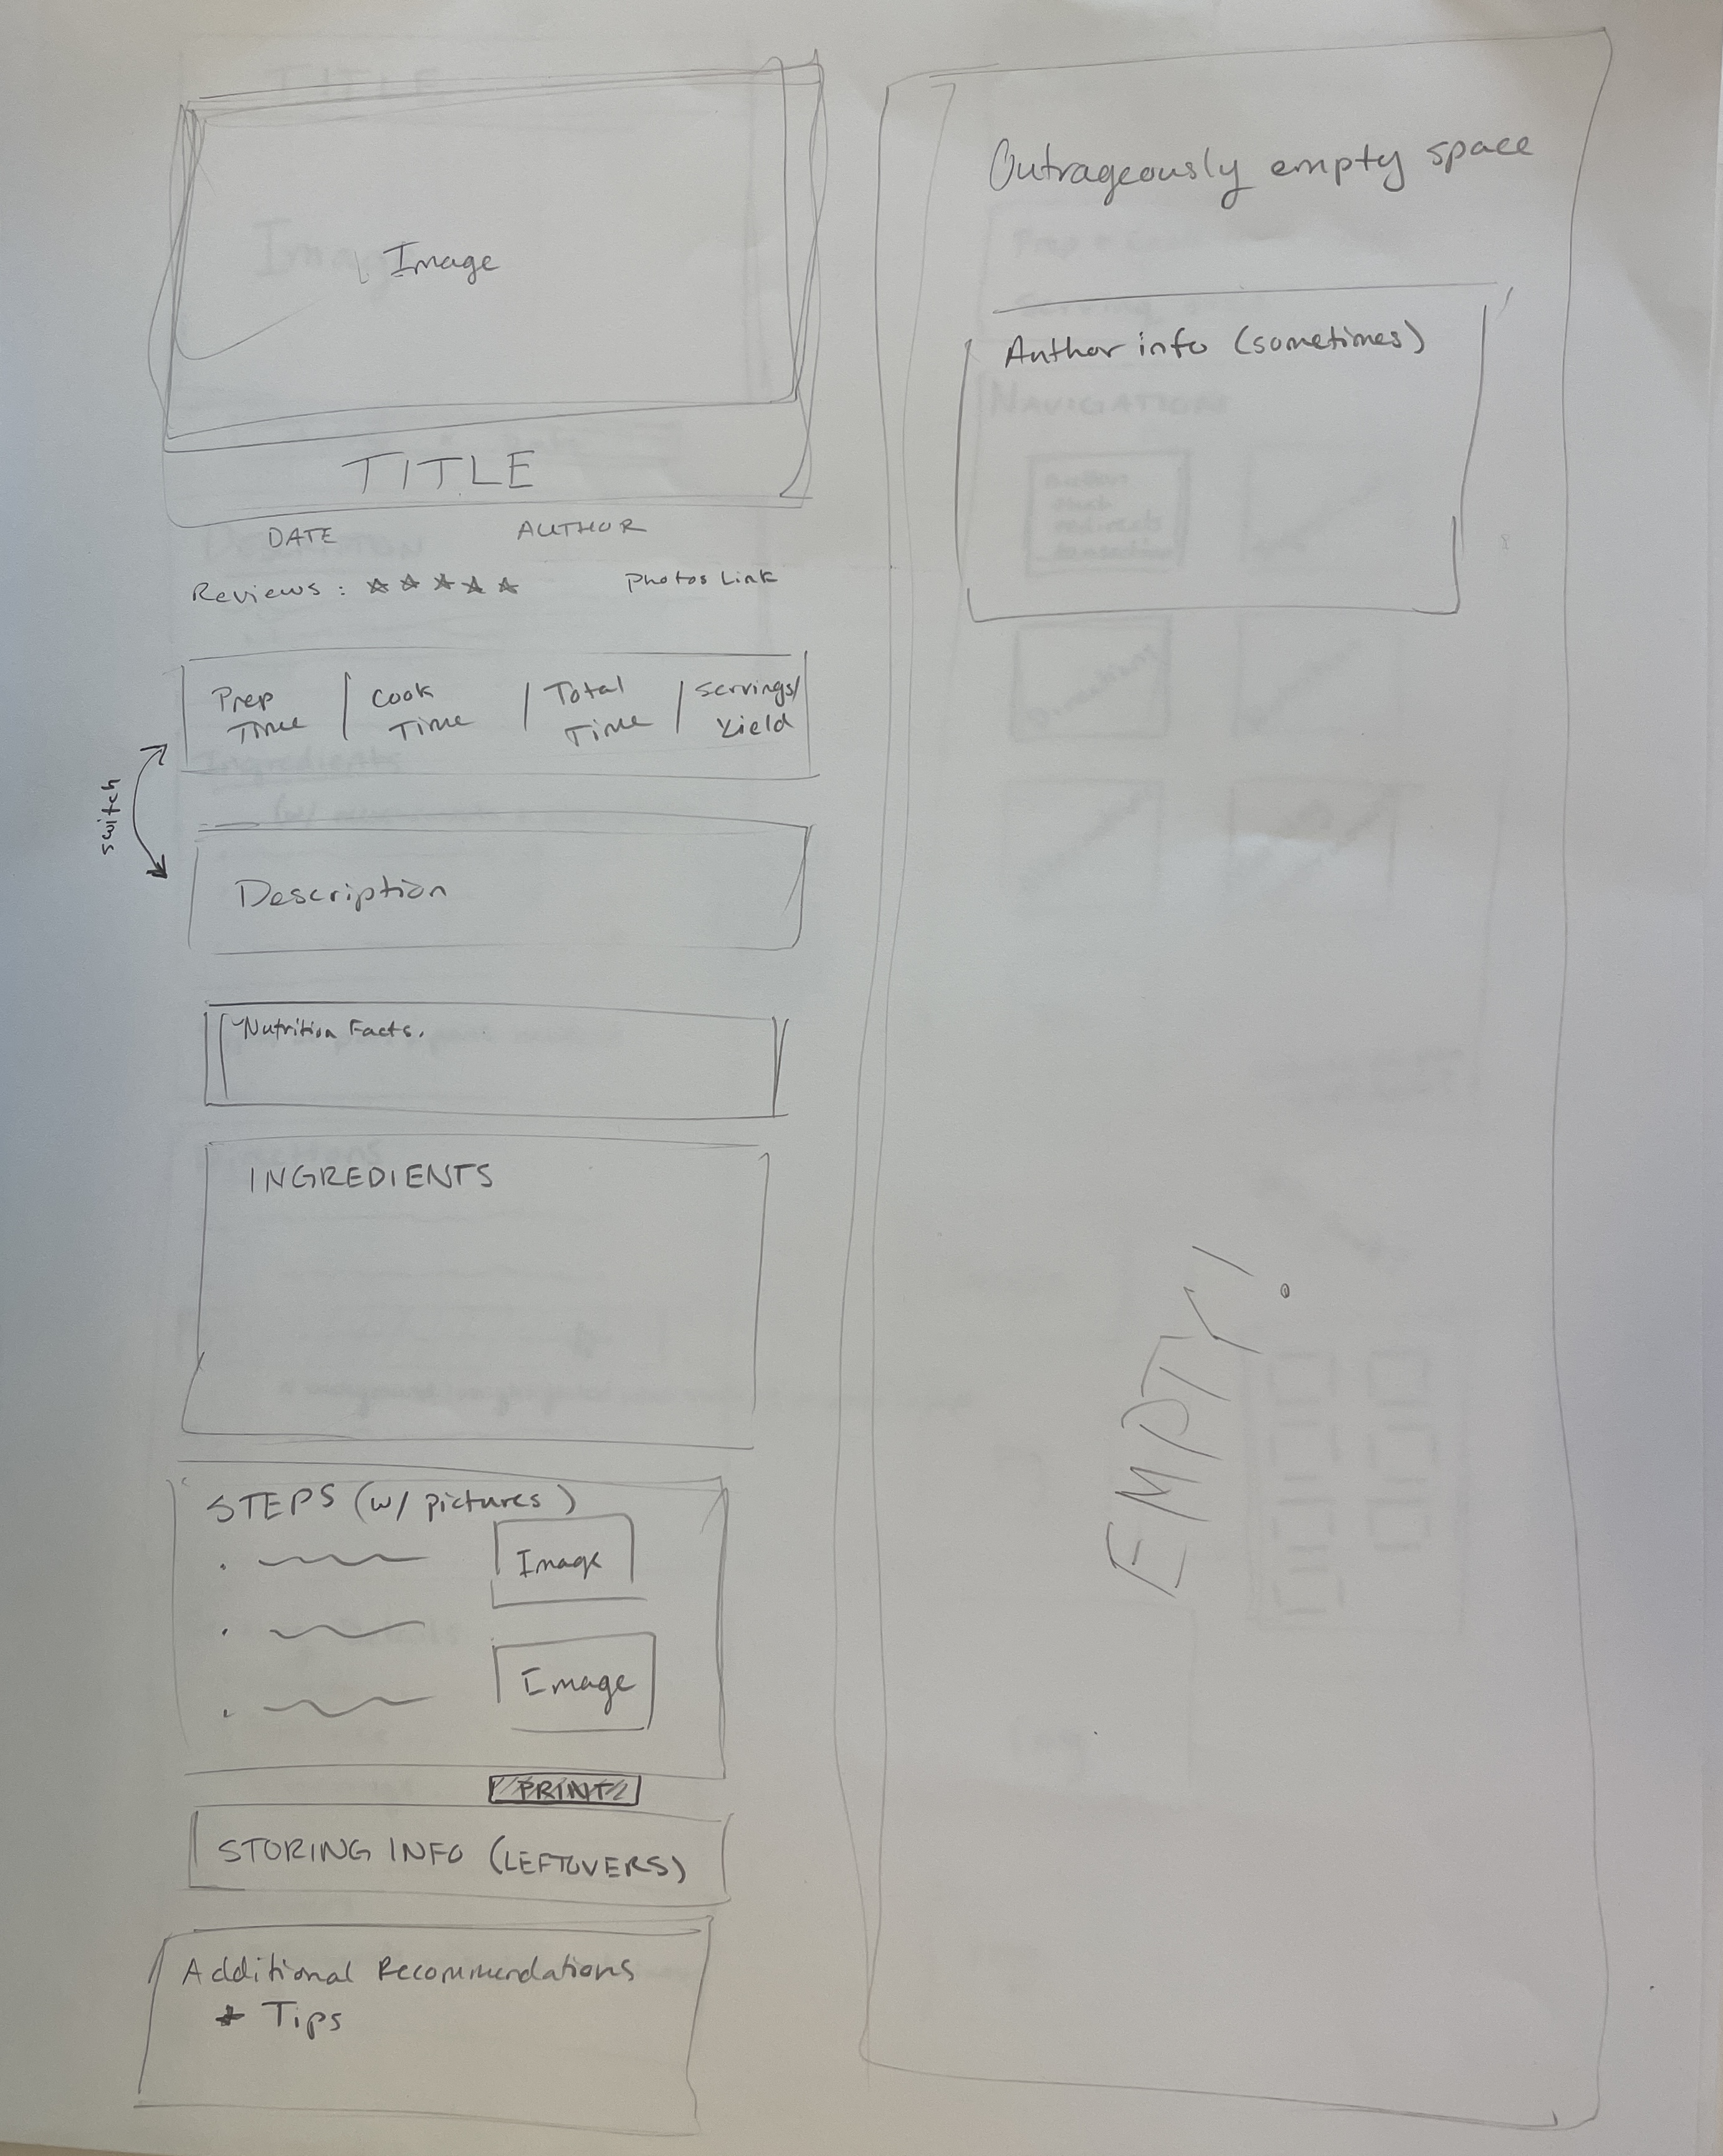 Image
TITLE
DATE AUTHOR
Reviews: ☆ ☆ ☆ ☆ ☆ Photos Link
Prep Time | Cook Time | Total Time | Servings/ Yield
switch
Description
Nutrition Facts.
INGREDIENTS
STEPS (w/ pictures)
Image
Image
PRINT
STORING INFO (LEFTOVERS)
Additional Recommendations
+ Tips
Outrageously empty space
Author info (sometimes)
NAVIGATION
EMPTY!